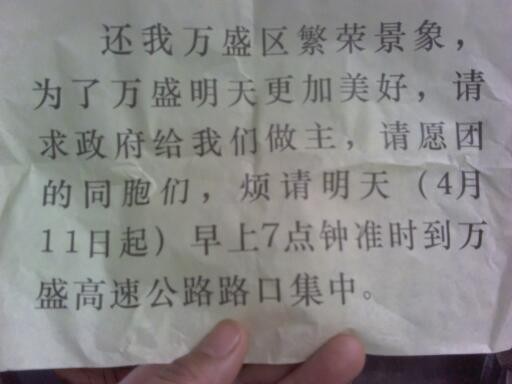 还我万盛区繁荣景象，
为了万盛明天更加美好，请
求政府给我们做主，请愿团
的同胞们，烦请明天（4月
11日起）早上7点钟准时到万
盛高速公路路口集中。